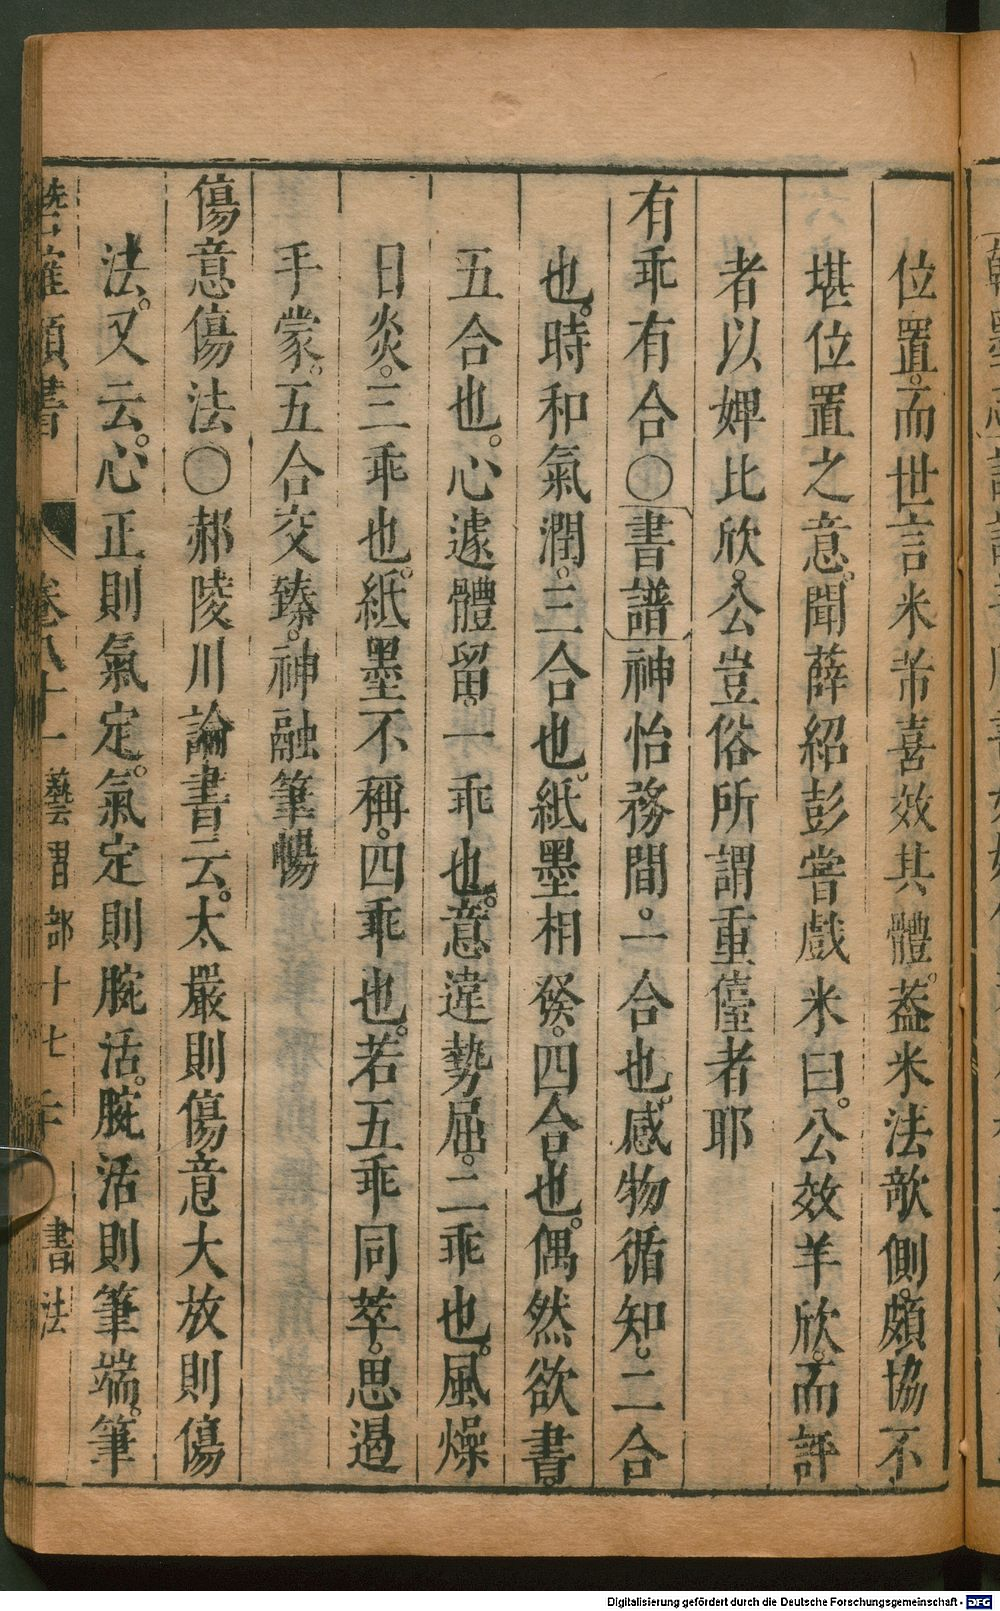 位置。而世言米芾喜效其體。蓋米法欹側。頗協不
堪位置之意。聞薛紹彭嘗戲米曰。公效羊欣。而評
者以婢比欣。公豈俗所謂重儓者耶
有乖有合〇書譜神怡務閒。一合也。感物循知。二合
也。時和氣潤。三合也。紙墨相發。四合也。偶然欲書。
五合也。心遽體留。一乖也。意違勢屈。二乖也。風燥
日炎。三乖也。紙墨不稱。四乖也。若五乖同萃。思遏
手蒙。五合交臻。神融筆暢
傷意傷法〇郝陵川論書云。太嚴則傷意大放則傷
法。又云。心正則氣定。氣定則腕活。腕活則筆端。筆
確類書 卷八十一 藝習部十七 書法
Digitalisierung gefördert durch die Deutsche Forschungsgemeinschaft - DFG